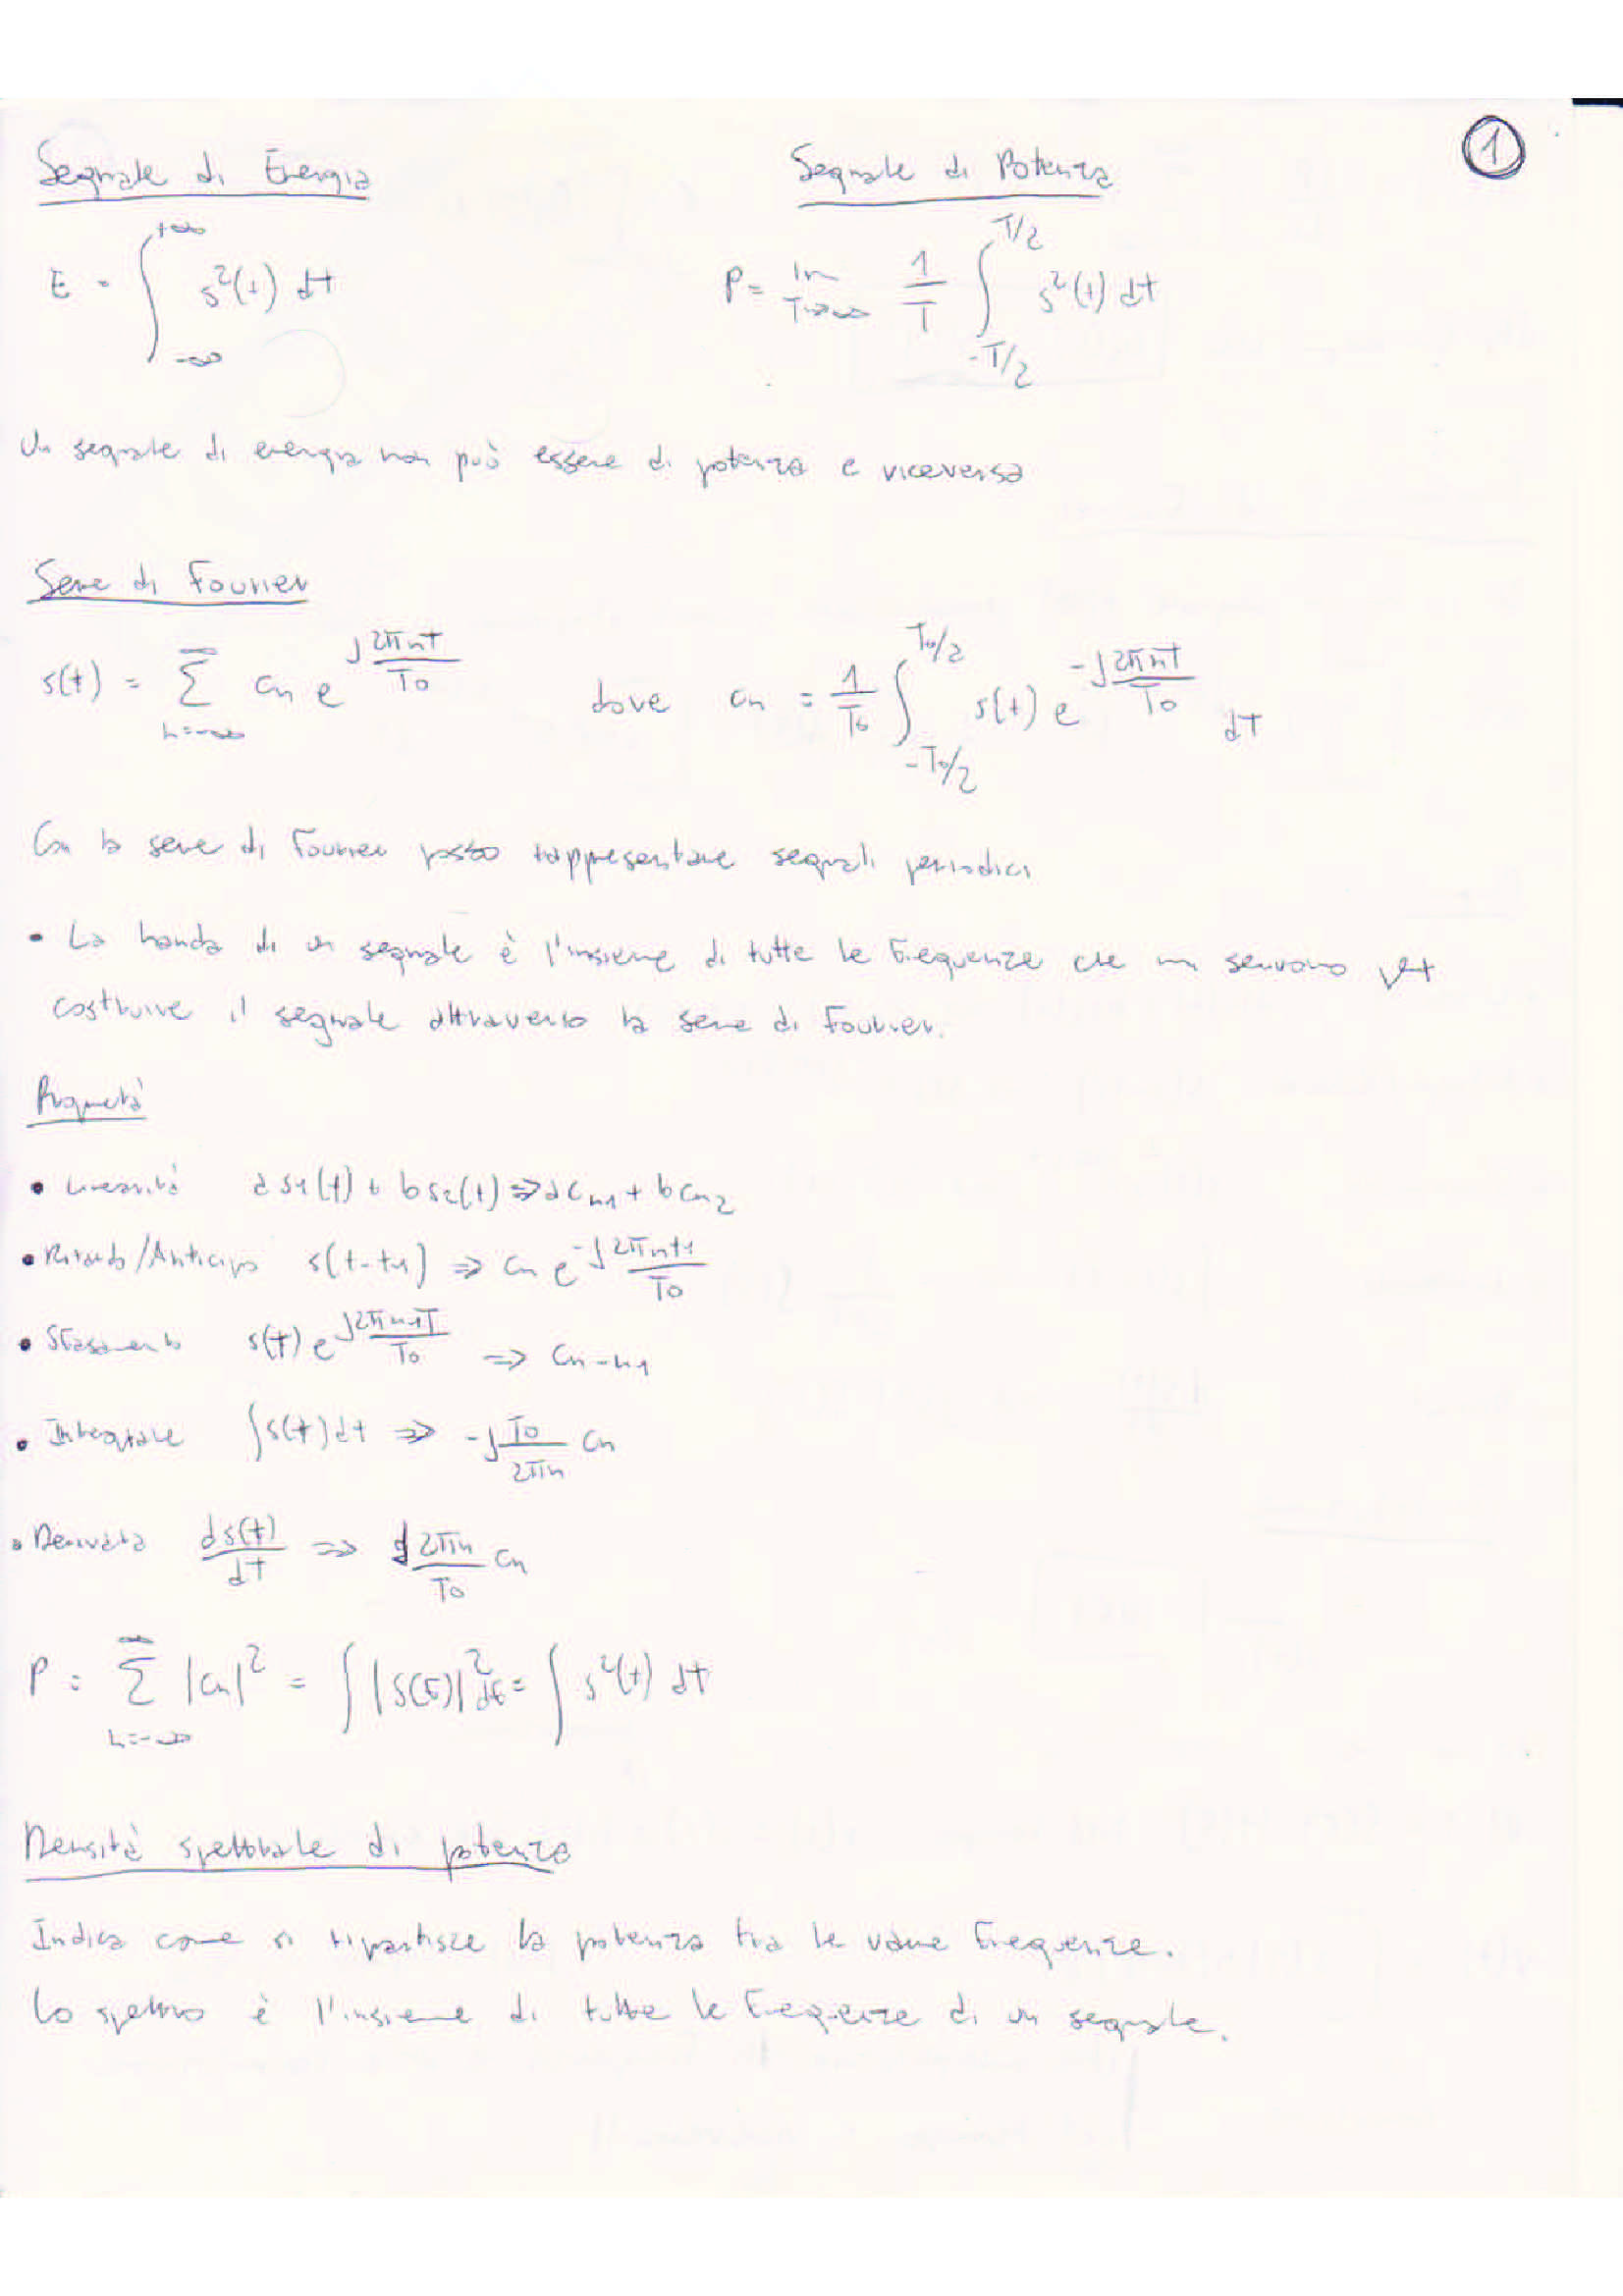 1
Segnale di Energia
E = ∫_{-∞}^{+∞} s²(t) dt
Segnale di Potenza
P = lim_{T→∞} 1/T ∫_{-T/2}^{T/2} s²(t) dt
Un segnale di energia non può essere di potenza e viceversa
Serie di Fourier
s(t) = Σ_{n=-∞}^{∞} cn e^{j 2πnt/T0} dove cn = 1/T0 ∫_{-T0/2}^{T0/2} s(t) e^{-j 2πnt/T0} dt
Con la serie di Fourier posso rappresentare segnali periodici
• La banda di un segnale è l'insieme di tutte le frequenze che mi servono per
costruire il segnale attraverso la serie di Fourier.
Proprietà
• Linearità a s1(t) + b s2(t) ⇒ a cn1 + b cn2
• Ritardo/Anticipo s(t-t1) ⇒ cn e^{-j 2πnt1/T0}
• Sfasamento s(t) e^{j 2πn1t/T0} ⇒ cn-n1
• Integrale ∫ s(t) dt ⇒ -j T0/2πn cn
• Derivata ds(t)/dt ⇒ j 2πn/T0 cn
P = Σ_{n=-∞}^{∞} |cn|² = ∫ |S(f)|² df = ∫ s²(t) dt
Densità spettrale di potenza
Indica come si ripartisce la potenza tra le varie frequenze.
Lo spettro è l'insieme di tutte le frequenze di un segnale.